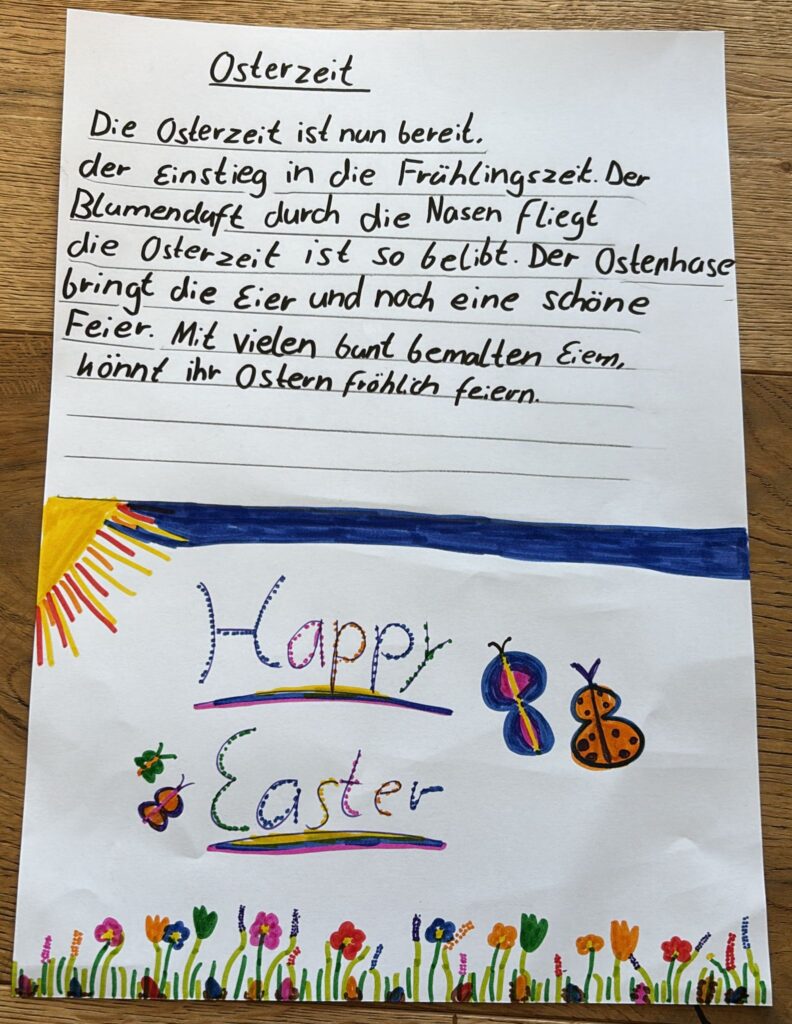 Osterzeit
Die Osterzeit ist nun bereit.
der Einstieg in die Frühlingszeit. Der
Blumenduft durch die Nasen fliegt
die Osterzeit ist so belibt. Der Osterhase
bringt die Eier und noch eine schöne
Feier. Mit vielen bunt bemalten Eiern,
könnt ihr Ostern fröhlich feiern.
Happy
Easter